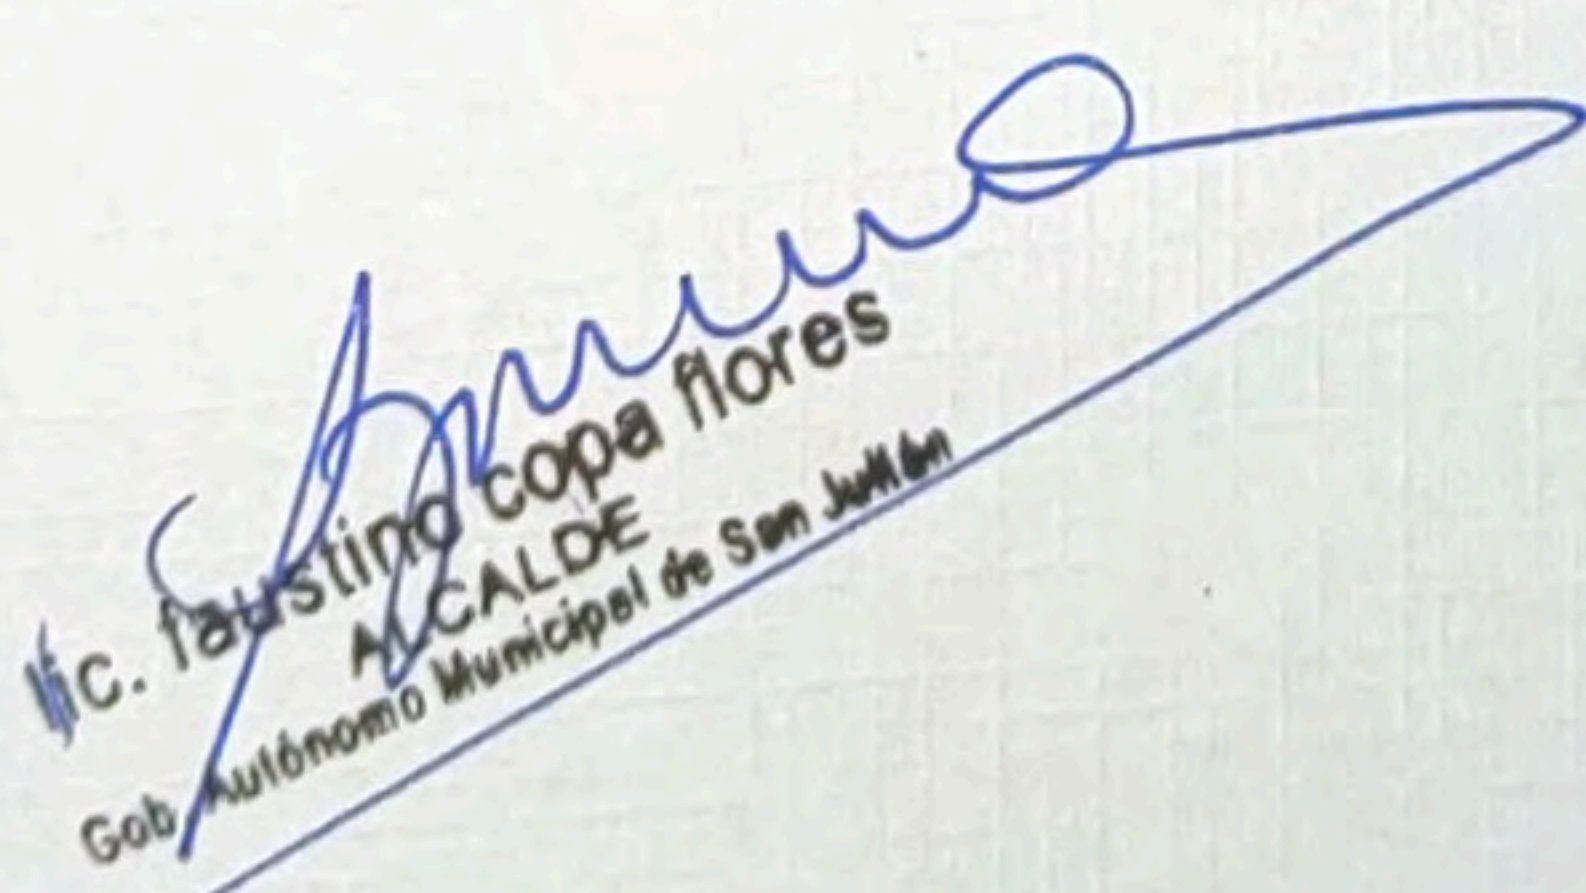 lic. faustino copa flores
ALCALDE
Gob. Autónomo Municipal de San Julián